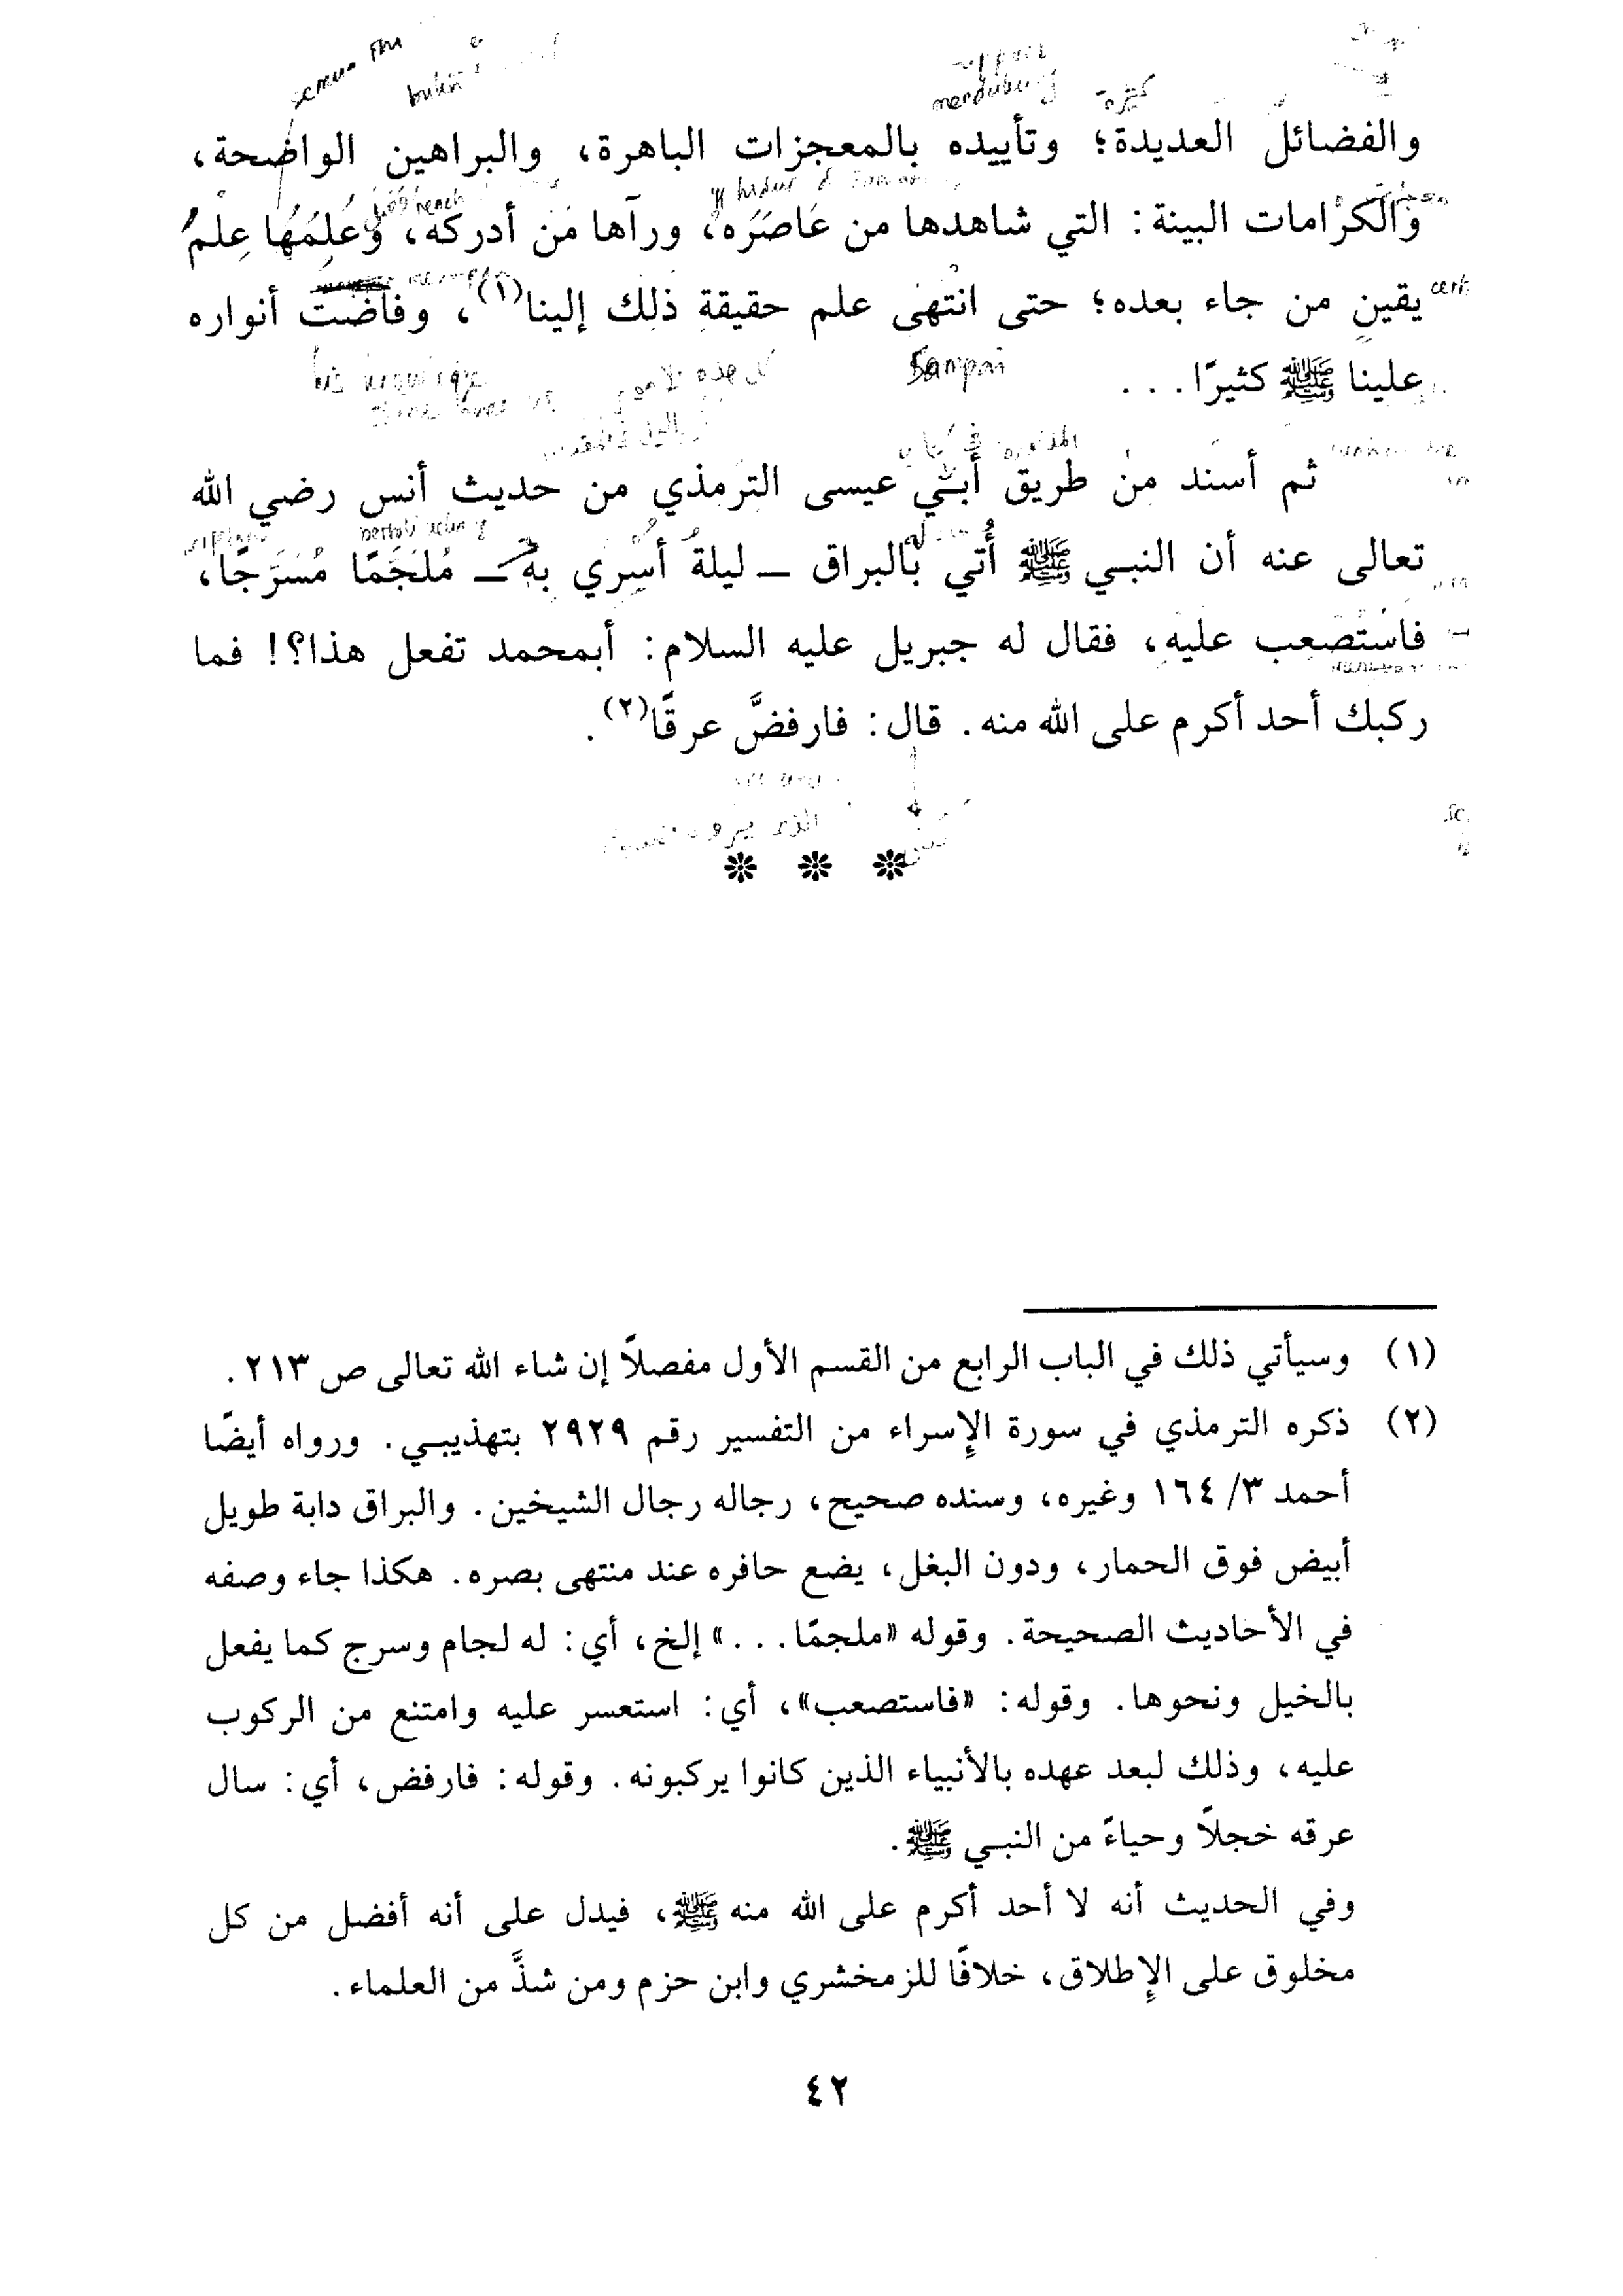 semua
bukti
mendukung
والفضائل العديدة؛ وتأييده بالمعجزات الباهرة، والبراهين الواضحة،
والكرامات البينة: التي شاهدها من عَاصَرَه، ورآها مَن أدركه، وَعَلِمَهَا عِلْمُ
يقينٍ من جاء بعده؛ حتى انتهى علم حقيقةِ ذلك إلينا(١)، وفاضت أنواره
علينا ﷺ كثيرًا...
Sampai
ثم أسند من طريق أبي عيسى الترمذي من حديث أنس رضي الله
تعالى عنه أن النبي ﷺ أُتي بالبراق ــ ليلة أسري به ــ مُلْجَمًا مُسَرَجًا،
فاستصعب عليه، فقال له جبريل عليه السلام: أبمحمد تفعل هذا؟! فما
ركبك أحد أكرم على الله منه. قال: فارفضَّ عرقًا(٢).
(١) وسيأتي ذلك في الباب الرابع من القسم الأول مفصلاً إن شاء الله تعالى ص ٢١٣.
(٢) ذكره الترمذي في سورة الإسراء من التفسير رقم ٢٩٢٩ بتهذيبي. ورواه أيضًا
أحمد ٣/ ١٦٤ وغيره، وسنده صحيح، رجاله رجال الشيخين. والبراق دابة طويل
أبيض فوق الحمار، ودون البغل، يضع حافره عند منتهى بصره. هكذا جاء وصفه
في الأحاديث الصحيحة. وقوله «ملجمًا...» إلخ، أي: له لجام وسرج كما يفعل
بالخيل ونحوها. وقوله: «فاستصعب»، أي: استعسر عليه وامتنع من الركوب
عليه، وذلك لبعد عهده بالأنبياء الذين كانوا يركبونه. وقوله: فارفض، أي: سال
عرقه خجلاً وحياءً من النبي ﷺ.
وفي الحديث أنه لا أحد أكرم على الله منه ﷺ، فيدل على أنه أفضل من كل
مخلوق على الإطلاق، خلافًا للزمخشري وابن حزم ومن شذَّ من العلماء.
٤٢